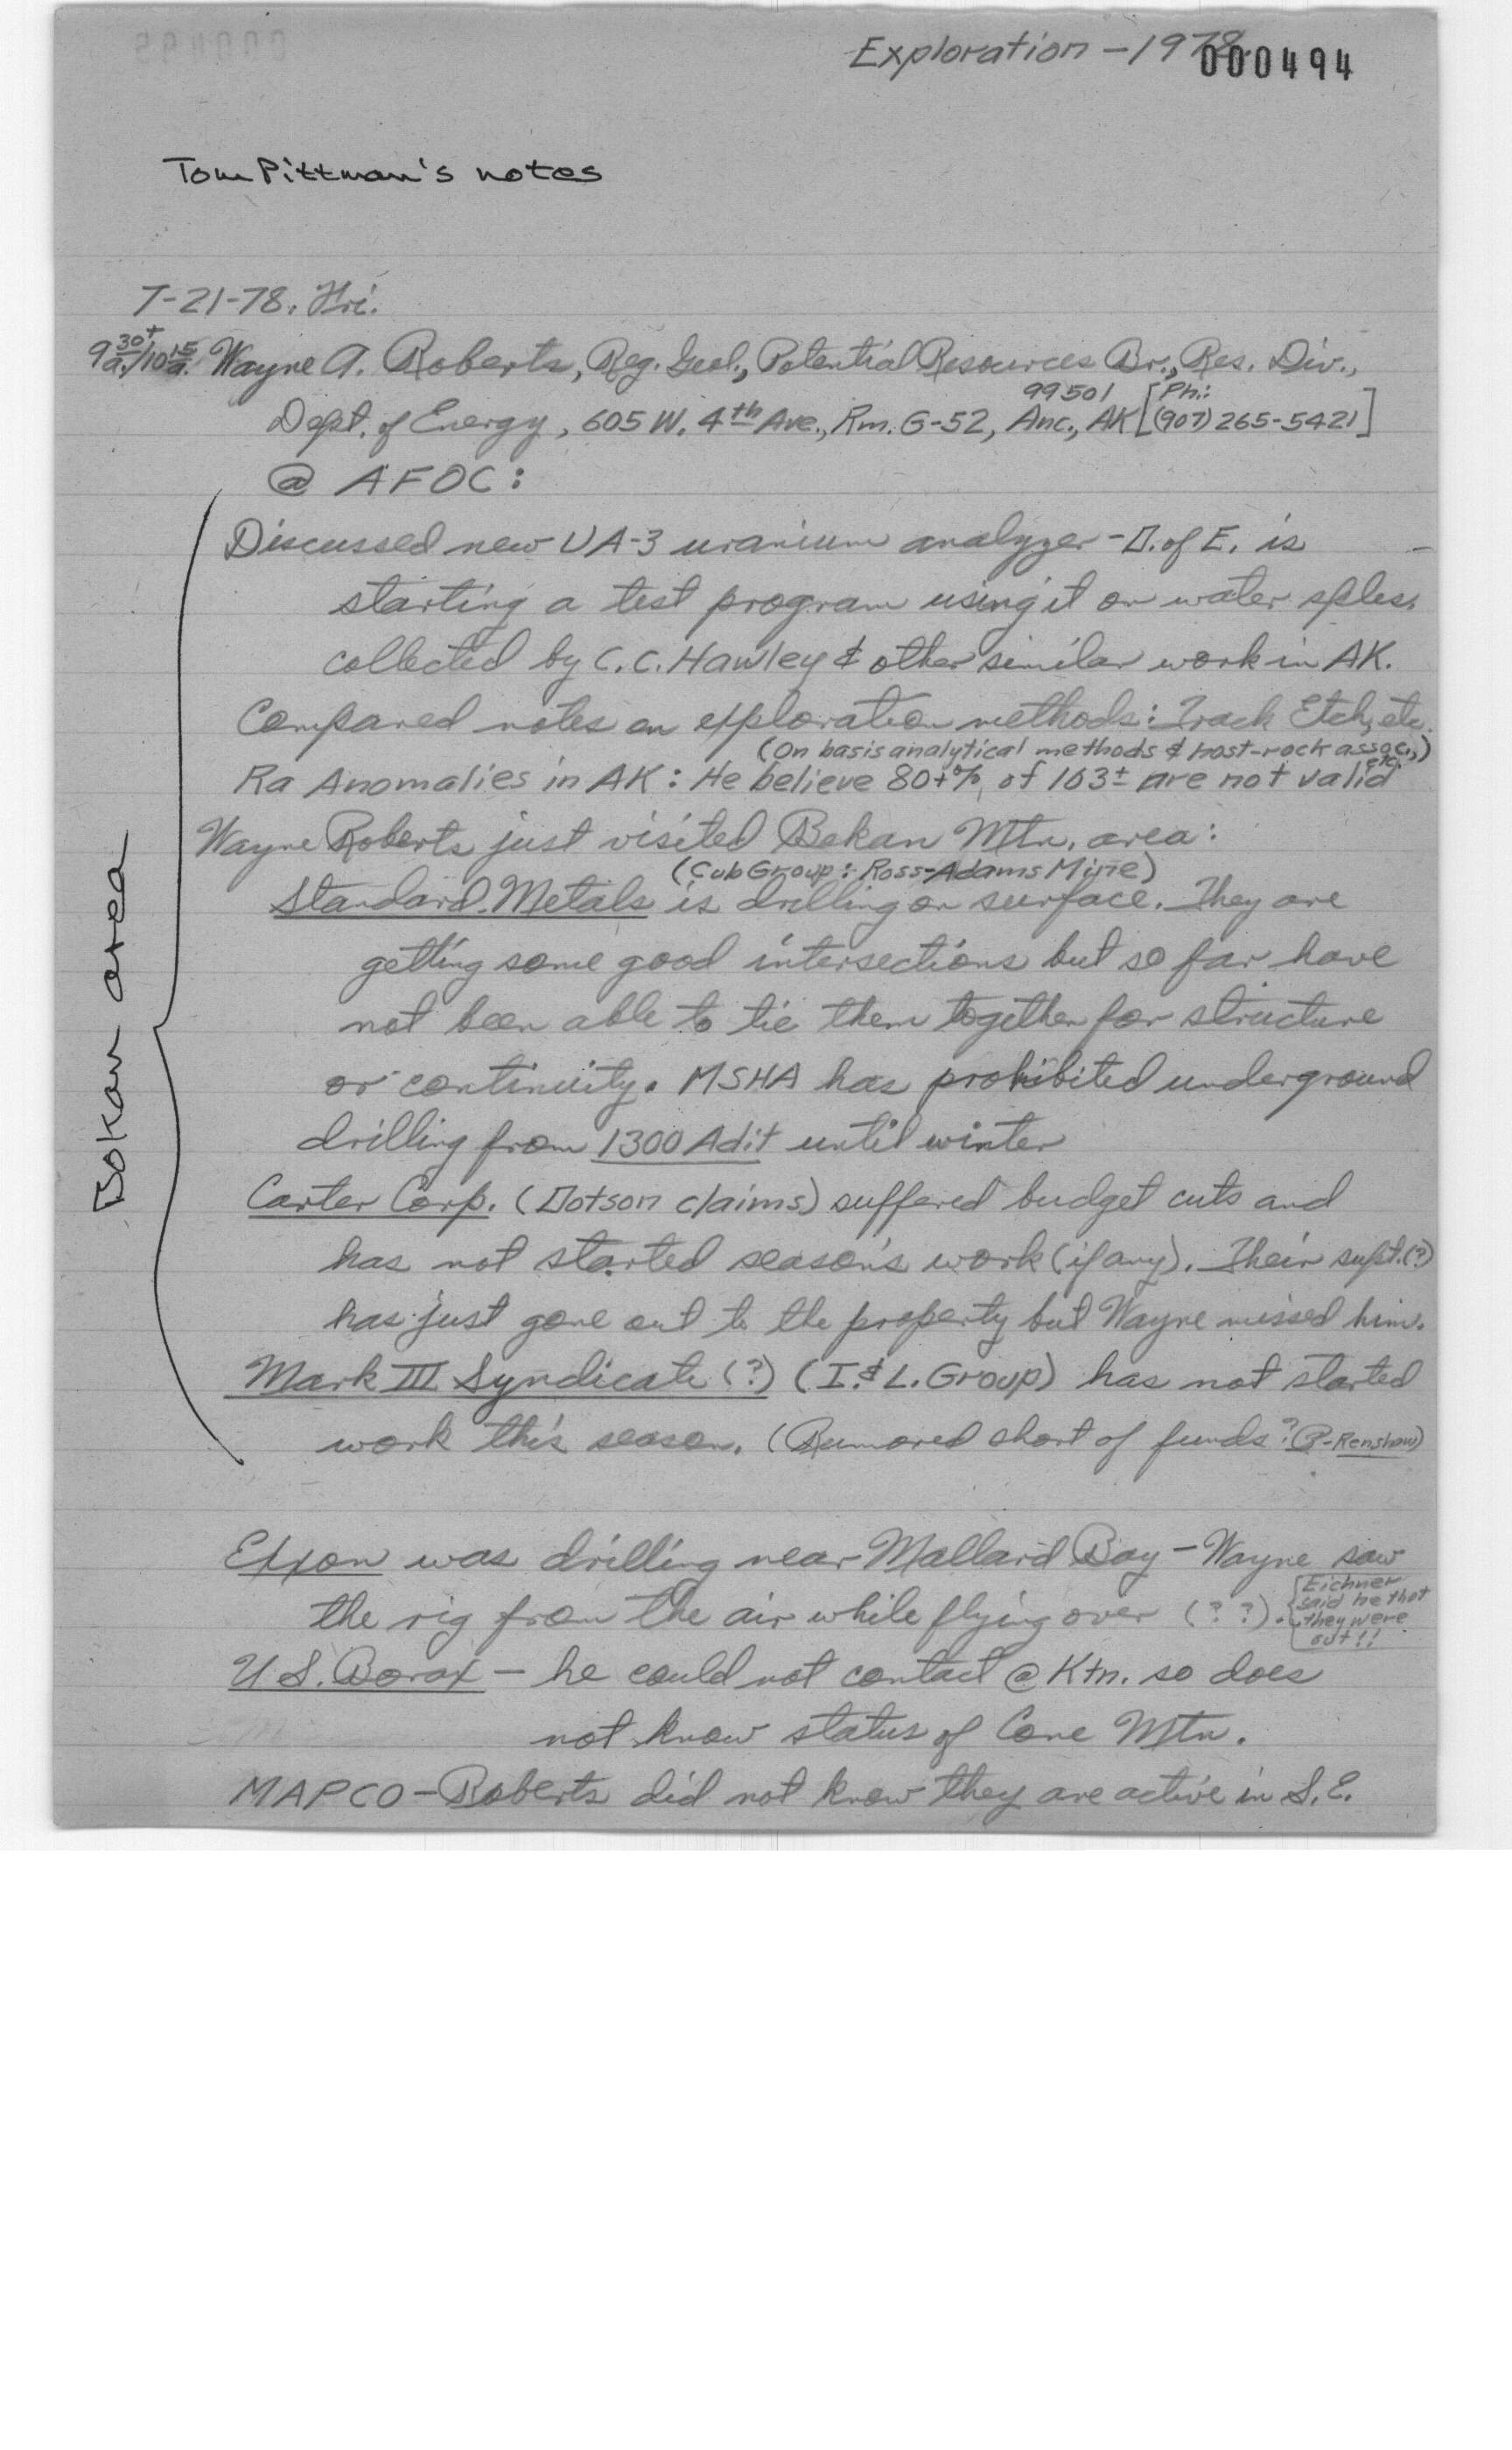 Exploration - 1978
000494
Tom Pittman's notes
7-21-78. Fri.
9 30+ a./10 15 a. Wayne A. Roberts, Reg. Geol., Potential Resources Br., Res. Div.,
99501 [Ph.:
Dept. of Energy, 605 W. 4th Ave., Rm. G-52, Anc., AK (907) 265-5421]
@ AFOC:
Bokan area
Discussed new UA-3 uranium analyzer - D. of E. is
starting a test program using it on water sples.
collected by C.C. Hawley & other similar work in AK.
Compared notes on exploration methods: Track Etch, etc.
(On basis analytical methods & host-rock assoc., etc.)
Ra Anomalies in AK: He believe 80+%, of 163± are not valid
Wayne Roberts just visited Bokan Mtn. area:
(Cub Group: Ross-Adams Mine)
Standard Metals is drilling on surface. They are
getting some good intersections but so far have
not been able to tie them together for structure
or continuity. MSHA has prohibited underground
drilling from 1300 Adit until winter
Carter Corp. (Dotson claims) suffered budget cuts and
has not started season's work (if any). Their supt. (?)
has just gone out to the property but Wayne missed him.
Mark III Syndicate (?) (I. & L. Group) has not started
work this season. (Rumored short of funds? P-Renshaw)
Exxon was drilling near Mallard Bay - Wayne saw
the rig from the air while flying over (??). [Eichner
said he thot
they were
out!!
U.S. Borax - he could not contact @ Ktn. so does
not know status of Cone Mtn.
MAPCO - Roberts did not know they are active in S.E.